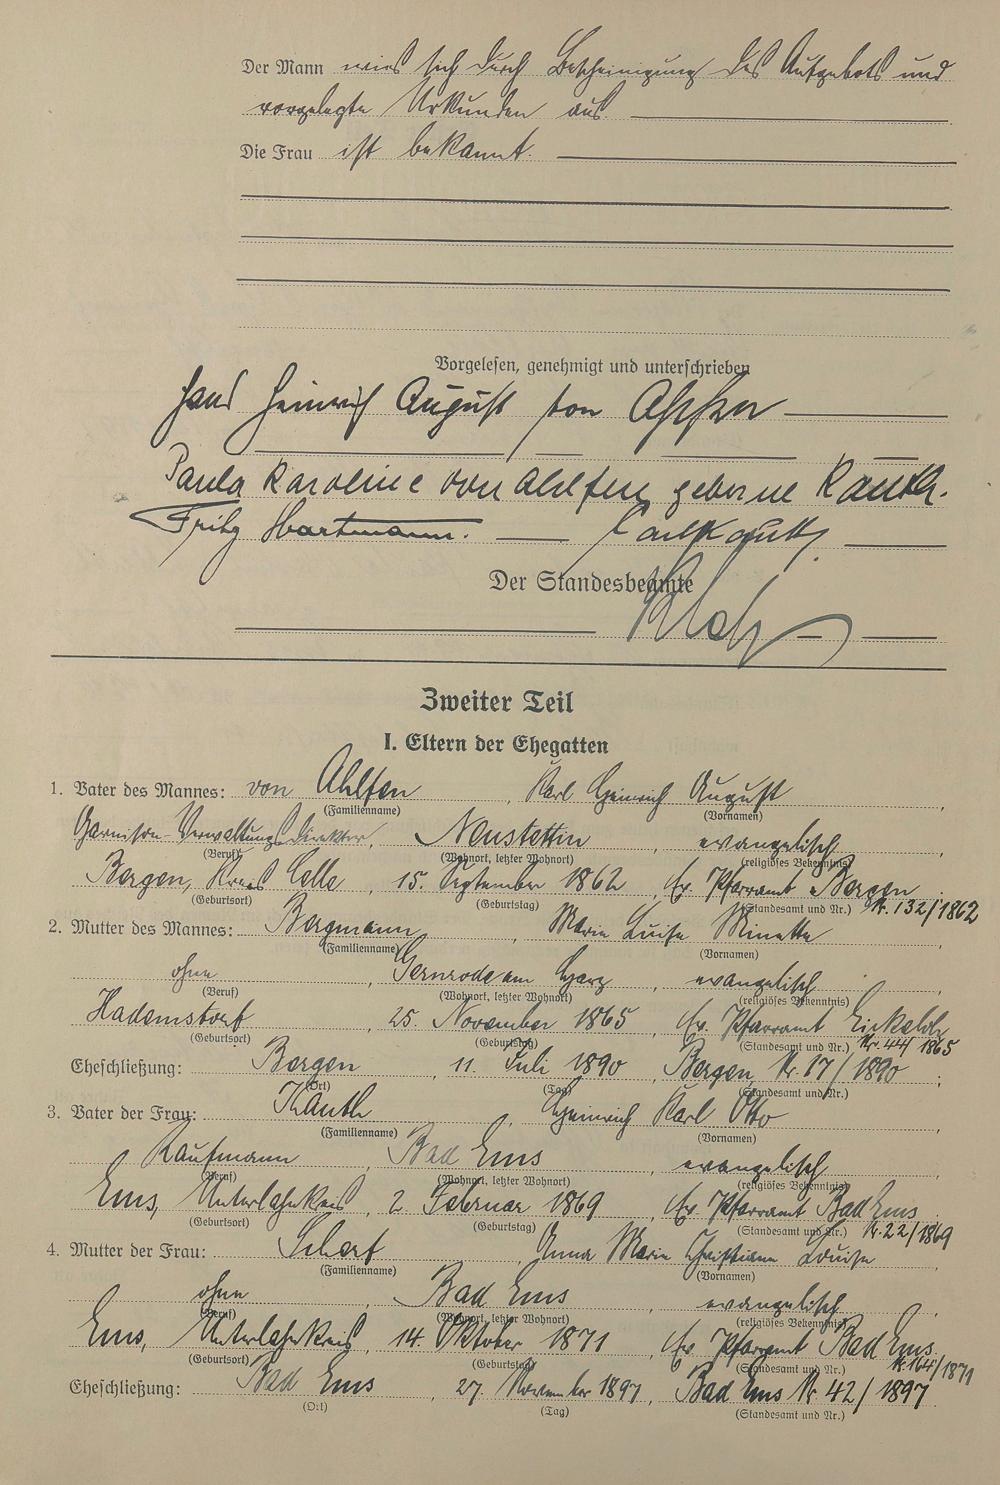 Der Mann wies sich durch Bescheinigung des Aufgebots und
vorgelegte Urkunden aus.
Die Frau ist bekannt.
Vorgelesen, genehmigt und unterschrieben
Hans Heinrich August von Ahlften
Paula Karoline von Ahlften geborene Kauth.
Fritz Hartmann. Karl Kauth
Der Standesbeamte
Zweiter Teil
I. Eltern der Ehegatten
1. Vater des Mannes: von Ahlften, Karl Heinrich August,
(Familienname) (Vornamen)
Garnison-Verwaltungsdirektor, Neustettin, evangelisch,
(Beruf) (Wohnort, letzter Wohnort) (religiöses Bekenntnis)
Bergen, Kreis Celle, 15. September 1862, Ev. Pfarramt Bergen
(Geburtsort) (Geburtstag) (Standesamt und Nr.) Nr. 132/1862
2. Mutter des Mannes: Bergmann, Marie Luise Minette
(Familienname) (Vornamen)
ohne, Gernrode am Harz, evangelisch
(Beruf) (Wohnort, letzter Wohnort) (religiöses Bekenntnis)
Hademstorf, 25. November 1865, Ev. Pfarramt Eickeloh
(Geburtsort) (Geburtstag) (Standesamt und Nr.) Nr. 44/1865
Eheschließung: Bergen, 11. Juli 1890, Bergen, Nr. 17/1890;
(Ort) (Tag) (Standesamt und Nr.)
3. Vater der Frau: Kauth, Heinrich Karl Otto,
(Familienname) (Vornamen)
Kaufmann, Bad Ems, evangelisch,
(Beruf) (Wohnort, letzter Wohnort) (religiöses Bekenntnis)
Ems, Unterlahnkreis, 2. Februar 1869, Ev. Pfarramt Bad Ems
(Geburtsort) (Geburtstag) (Standesamt und Nr.) Nr. 22/1869
4. Mutter der Frau: Scherf, Anna Marie Christiane Louise
(Familienname) (Vornamen)
ohne, Bad Ems, evangelisch,
(Beruf) (Wohnort, letzter Wohnort) (religiöses Bekenntnis)
Ems, Unterlahnkreis, 14. Oktober 1871, Ev. Pfarramt Bad Ems.
(Geburtsort) (Geburtstag) (Standesamt und Nr.) Nr. 164/1871
Eheschließung: Bad Ems, 27. November 1897, Bad Ems Nr. 42/1897.
(Ort) (Tag) (Standesamt und Nr.)